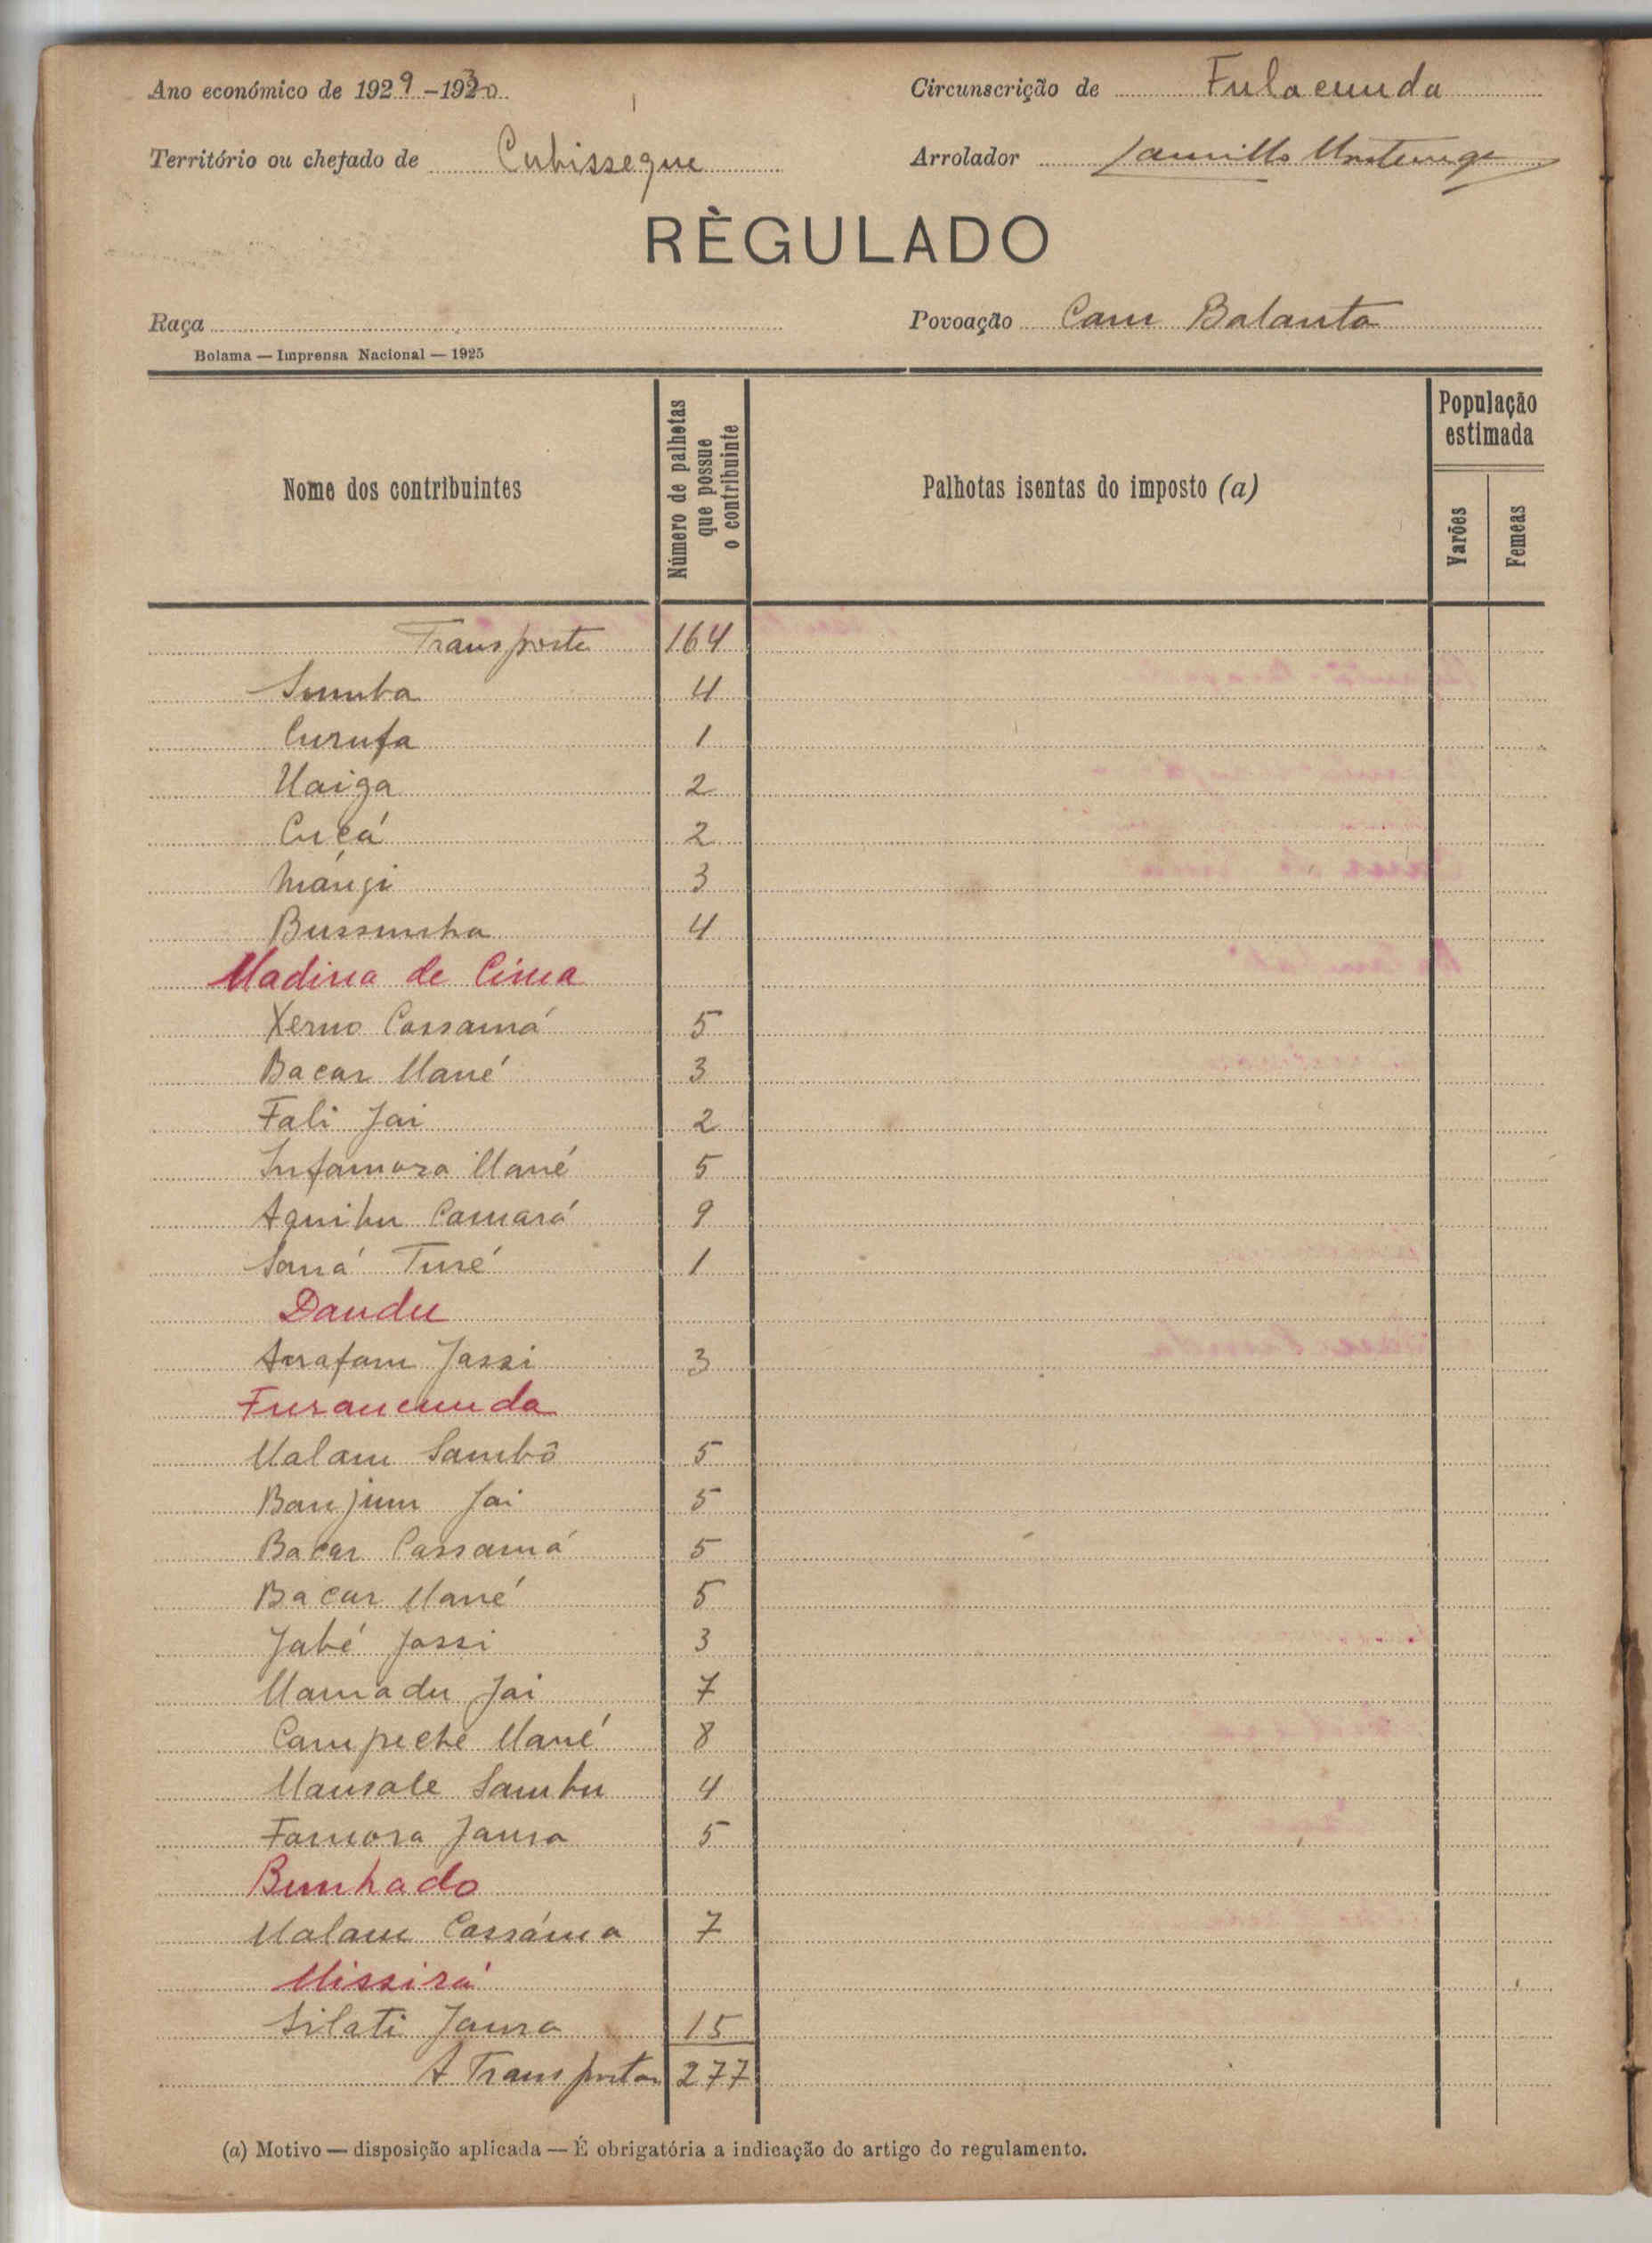 Ano económico de 1929-1930
Circunscrição de Fulacunda
Território ou chefado de Cubisseque
Arrolador
RÈGULADO
Raça
Povoação Cam Balanta
Bolama — Imprensa Nacional — 1925
Nome dos contribuintes
Número de palhotas que possue o contribuinte
Palhotas isentas do imposto (a)
População estimada
Varões
Femeas
Transporte 164
Sumba 4
Curufa 1
Uaiga 2
Cuçá 2
Mángi 3
Bussunha 4
Madina de Cima
Xerno Cassamá 5
Bacar Mané 3
Fali Jai 2
Infamara Mané 5
Aquibu Camará 9
Saná Turé 1
Dandu
Arafam Jassi 3
Furancunda
Malam Sambô 5
Banjum Jai 5
Bacar Cassamá 5
Bacar Mané 5
Jabé Jassi 3
Mamadu Jai 7
Campeche Mané 8
Mansale Sambu 4
Famora Jaura 5
Bunhado
Malam Cassáma 7
Missirá
Silati Jaura 15
A Transportar 277
(a) Motivo — disposição aplicada — É obrigatória a indicação do artigo do regulamento.